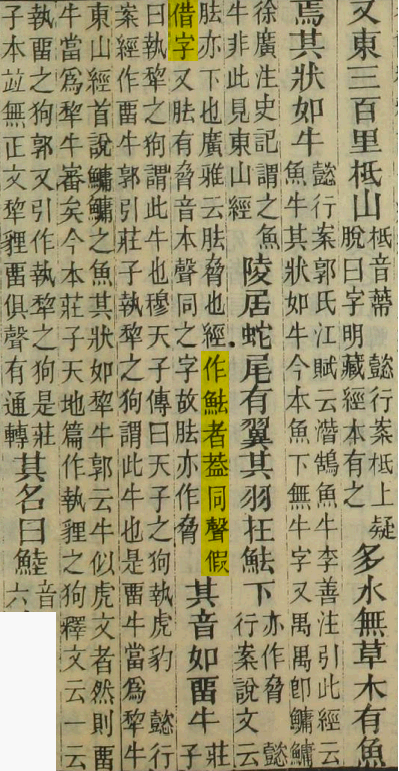 又東三百里柢山
柢音蔕 懿行案柢上疑
脫曰字明藏經本有之
多水無草木有魚
焉其狀如牛
懿行案郭氏江賦云潛鵠魚牛李善注引此經云
魚牛其狀如牛今本魚下無牛字又禺禺卽鱅鱅
徐廣注史記謂之魚
牛非此見東山經
陵居蛇尾有翼其羽在魼下
亦作脅 懿
行案說文云
胠亦下也廣雅云胠脅也經作魼者葢同聲假
借字又胠有脅音本聲同之字故胠亦作脅
其音如畱牛
莊
子
曰執犂之狗謂此牛也穆天子傳曰天子之狗執虎豹 懿行
案經作畱牛郭引莊子執犂之狗謂此牛也是畱牛當爲犂牛
東山經首說鱅鱅之魚其狀如犂牛郭云牛似虎文者然則畱
牛當爲犂牛審矣今本莊子天地篇作執貍之狗釋文云一云
執畱之狗郭又引作執犂之狗是莊
子本竝無正文犂貍畱俱聲有通轉
其名曰鯥
音
六